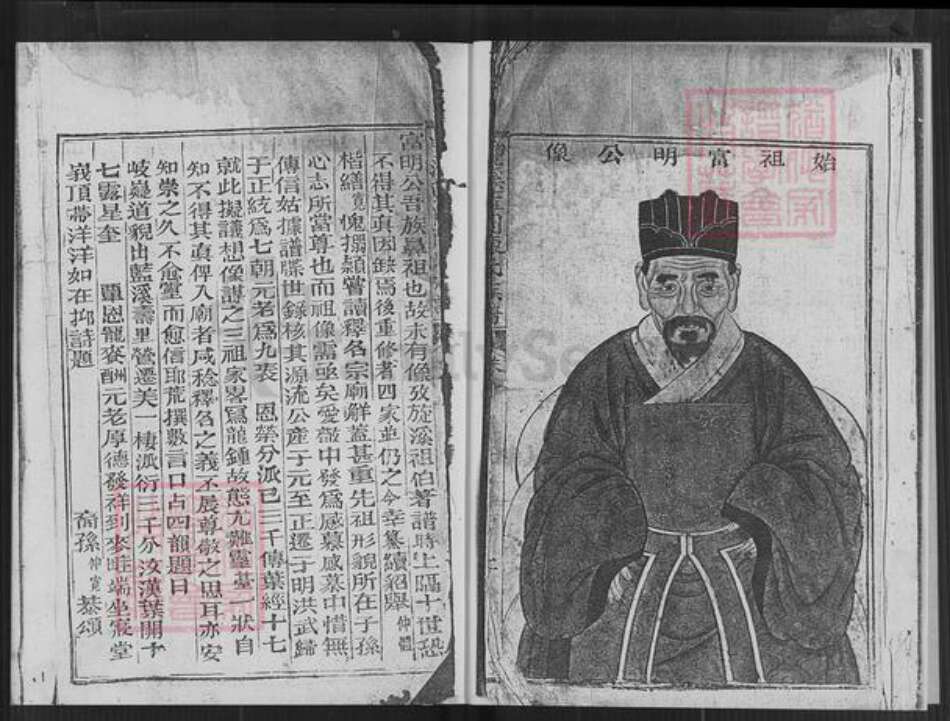 始祖富明公像
富明公吾族鼻祖也故未有像攷旋溪祖伯著譜時上隔十世恐
不得其真因缺焉後重修者四家並仍之今幸纂續貂舉仲體
楷繕寬愧攔潁嘗讀釋名宗廟解蓋甚重先祖形貌所在子孫
心志所當尊也而祖像需亟矣愛敬中發為感慕感慕中惜無
傳信姑據譜牒世錄核其源流公產于元至正遷于明洪武歸
于正統為七朝元老為九袠 恩榮分派已三千傳葉經十七
就此擬議想像謀之三祖家畧寫龍鍾故態尤難靈臺一狀自
知不得其真俾入廟者咸稔釋名之義丕展尊敬之思耳亦安
知崇之久不愈靈而愈信耶荒撰數言口占四韻題目
岐嶷道貌出藍溪壽里營遷美一棲派衍三千分汝漢葉開十
七露星奎 覃恩寵麥酬元老厚德發祥到麥畦端坐寢堂
峩頂帶洋洋如在抑詩題
裔孫仲富 恭頌